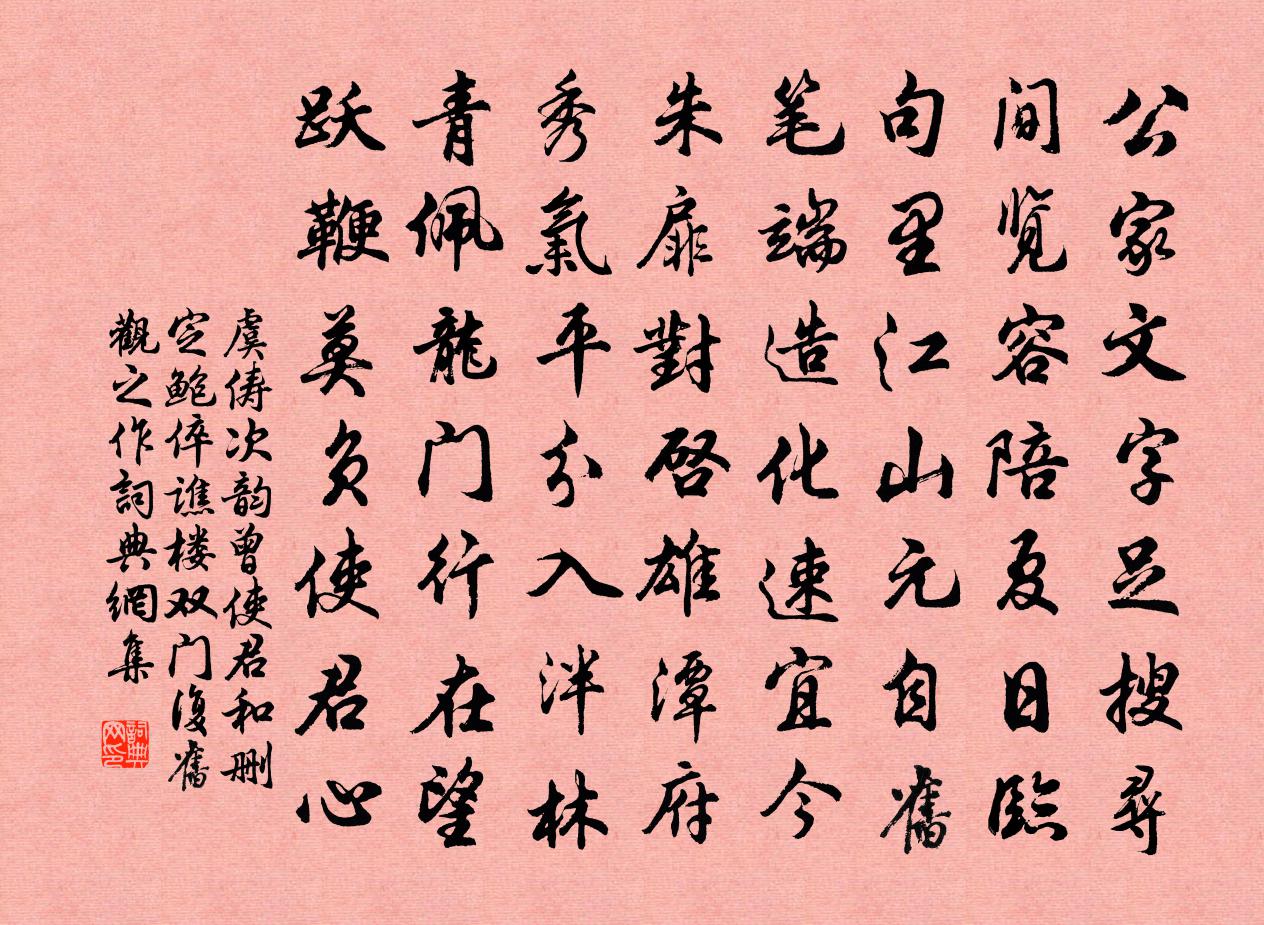 公家文字足搜尋
间览容陪夏日臨
句里江山元自舊
笔端造化速宜今
朱扉對啓雄潭府
秀氣平分入泮林
青佩龍门行在望
跃鞭莫负使君心
虞俦次韵曾使君和删
定鲍倅譙楼双门復舊
觀之作詞典網集
詞典
网印